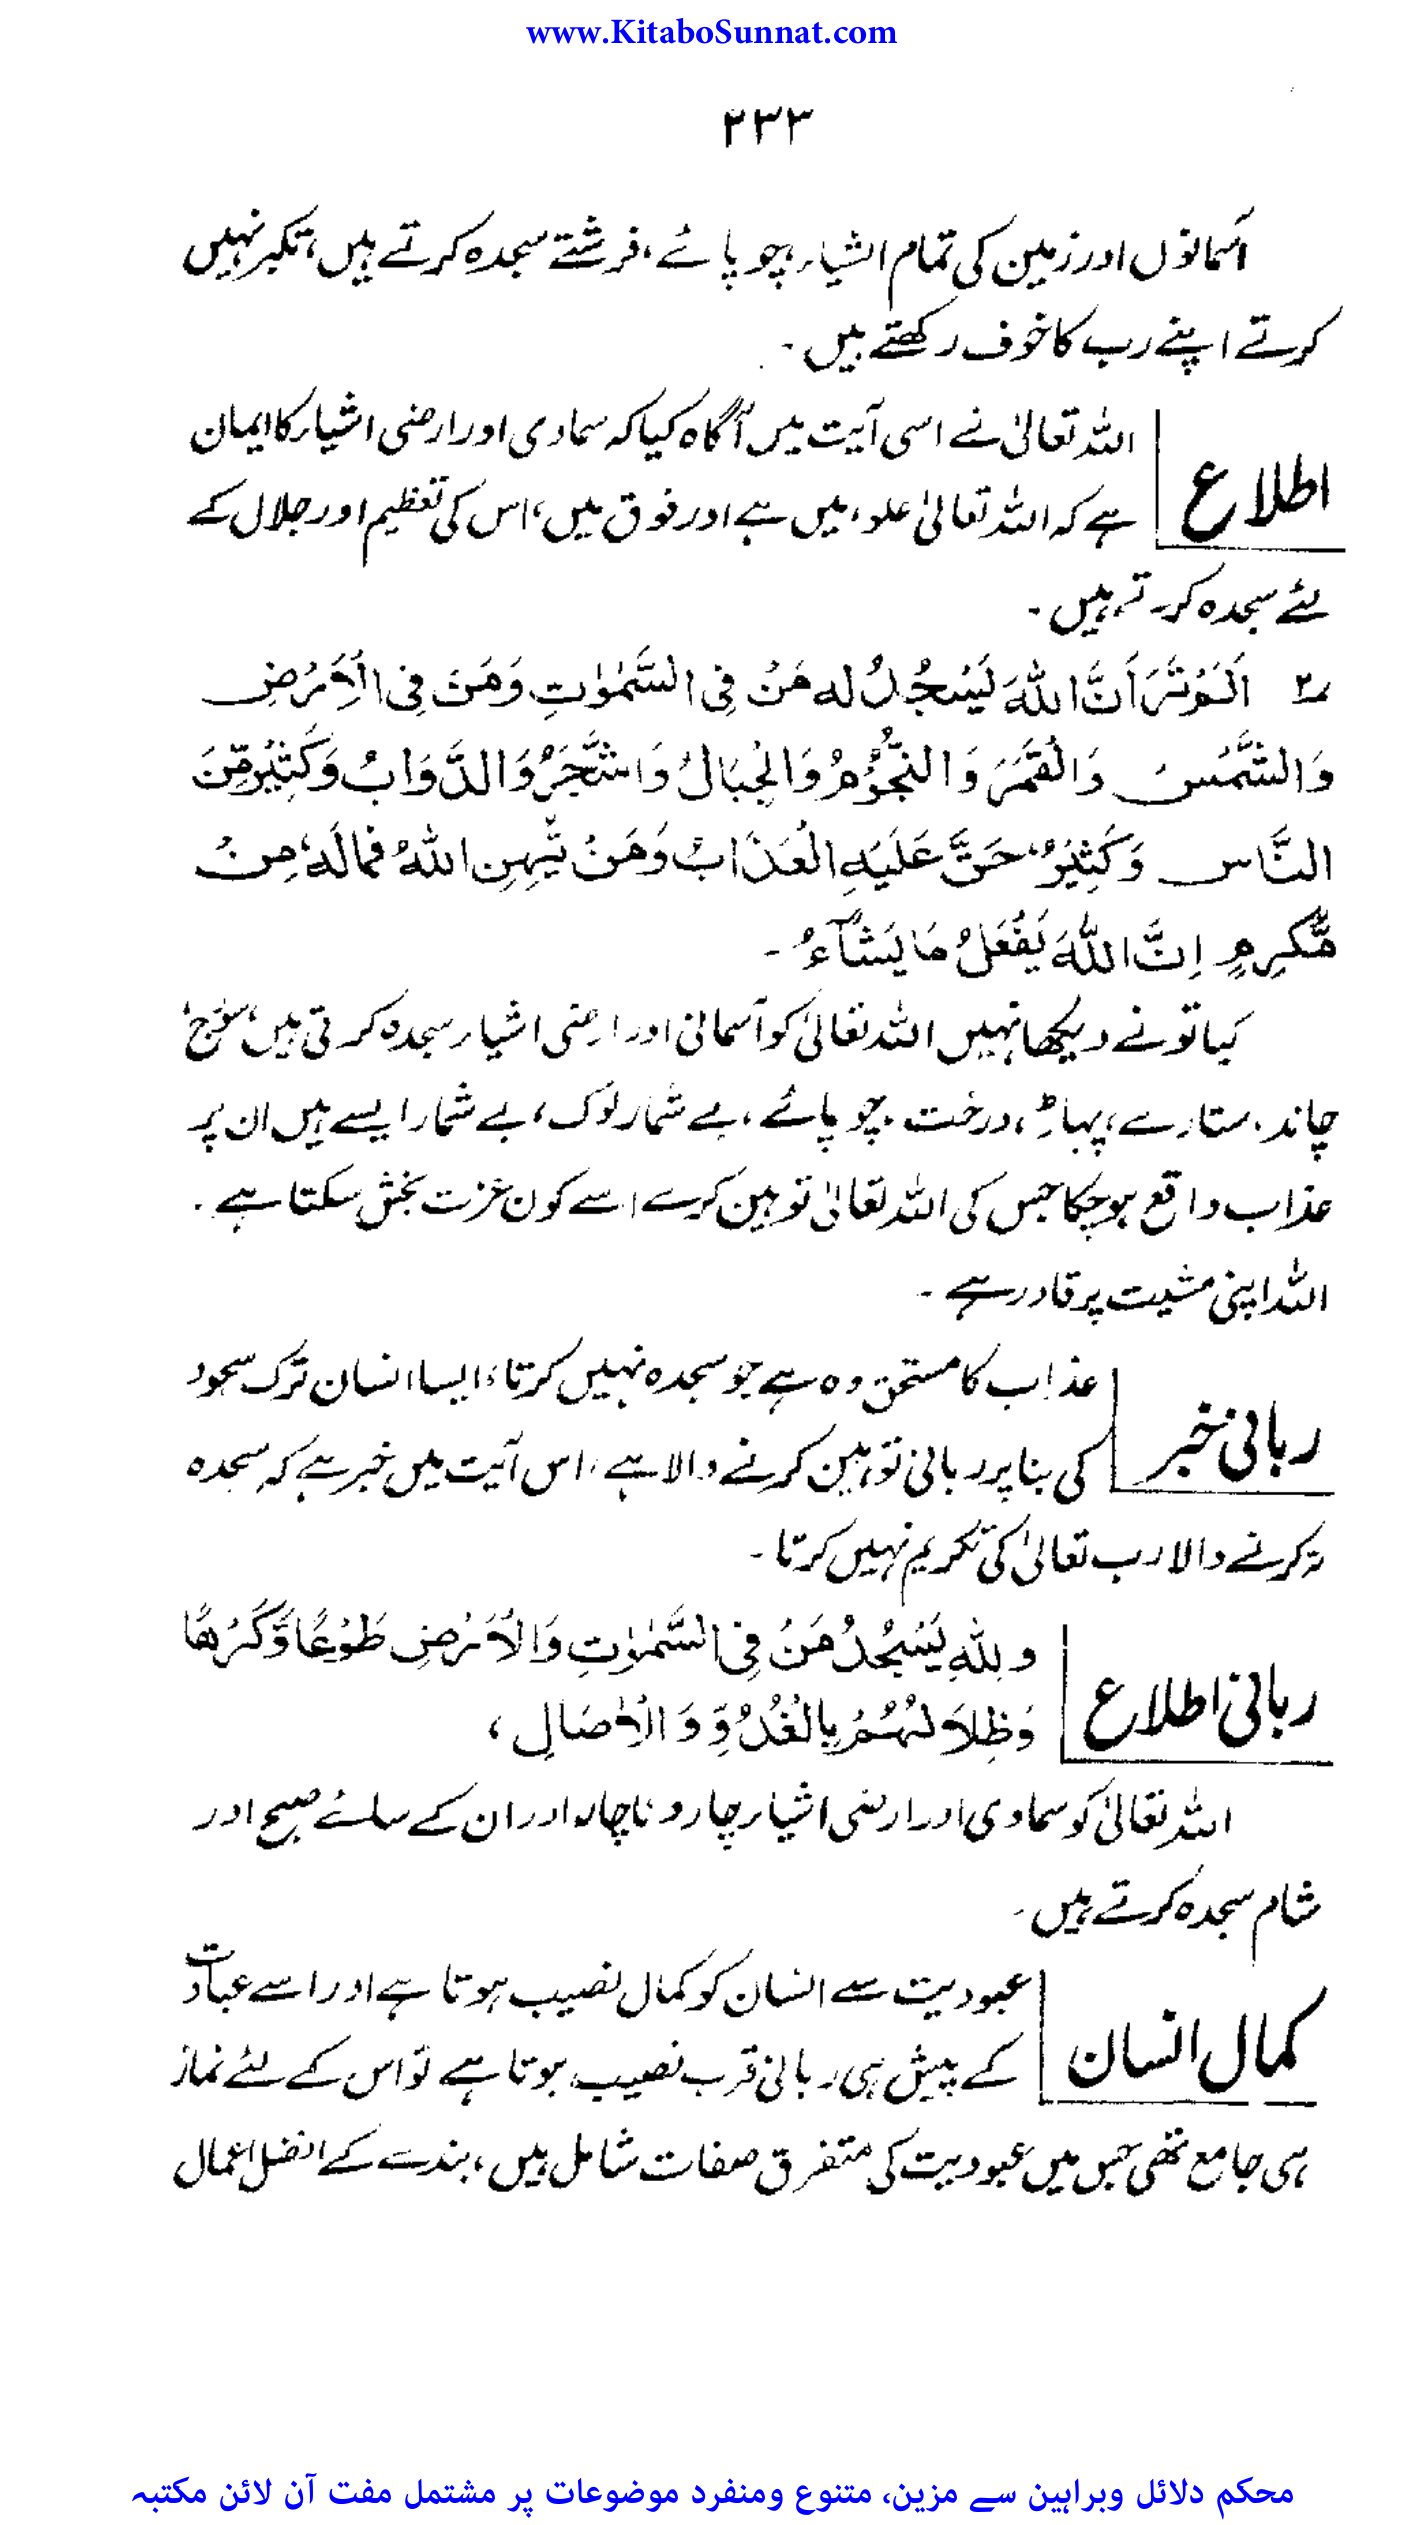 www.KitaboSunnat.com
۲۳۳
آسمانوں اور زمین کی تمام اشیاء، چوپائے، فرشتے سجدہ کرتے ہیں، تکبر نہیں
کرتے اپنے رب کا خوف رکھتے ہیں ۔
اطلاع
اللہ تعالیٰ نے اسی آیت میں آگاہ کیا کہ سماوی اور ارضی اشیاء کا ایمان
ہے کہ اللہ تعالیٰ علو، میں ہے اور فوق میں، اس کی تعظیم اور جلال کے
لئے سجدہ کرتے ہیں ۔
۲؍ اَلَمْ تَرَ اَنَّ اللّٰهَ يَسْجُدُ لَه مَنْ فِي السَّمٰوٰتِ وَمَنْ فِي الْاَرْضِ
وَالشَّمْسُ وَالْقَمَرَ وَالنُّجُوْمُ وَالْجِبَالُ وَاشَّجَرُ وَالدَّوَابُ وَكَثِيْرٌ مِّنَ
النَّاسِ وَكَثِيْرٌ حَقَّ عَلَيْهِ الْعَذَابُ وَمَنْ يُّهِنِ اللّٰهُ فَمَالَهٗ مِنْ
مُّكْرِمٍ اِنَّ اللّٰهَ يَفْعَلُ مَا يَشَآءُ ۔
کیا تو نے دیکھا نہیں اللہ تعالیٰ کو آسمانی اور ارضی اشیاء سجدہ کرتی ہیں، سورج،
چاند، ستارے، پہاڑ، درخت، چوپائے، بے شمار لوگ، بے شمار ایسے ہیں ان پر
عذاب واقع ہوچکا جس کی اللہ تعالیٰ توہین کرے اسے کون عزت بخش سکتا ہے ۔
اللہ اپنی مشیت پر قادر ہے ۔
ربانی خبر
عذاب کا مستحق وہ ہے جو سجدہ نہیں کرتا، ایسا انسان ترک سجود
کی بنا پر ربانی توہین کرنے والا ہے، اس آیت میں خبر ہے کہ سجدہ
نہ کرنے والا رب تعالیٰ کی تکریم نہیں کرتا ۔
ربانی اطلاع
وللهِ يَسْجُدُ مَنْ فِي السَّمٰوٰتِ وَالْاَرْضِ طَوْعًا وَّكَرْهًا
وَظِلَالُهُمْ بِالْغُدُوِّ وَالْاٰصَالِ ،
اللہ تعالیٰ کو سماوی اور ارضی اشیاء چار و ناچار اور ان کے سائے صبح اور
شام سجدہ کرتے ہیں ۔
کمال انسان
عبودیت سے انسان کو کمال نصیب ہوتا ہے اور اسے عبادت
کے پیش ہی ربانی قرب نصیب ہوتا ہے تو اس کے لئے نماز
ہی جامع تھی جس میں عبودیت کی متفرق صفات شامل ہیں، بندے کے افضل اعمال
محکم دلائل وبراہین سے مزین، متنوع ومنفرد موضوعات پر مشتمل مفت آن لائن مکتبہ